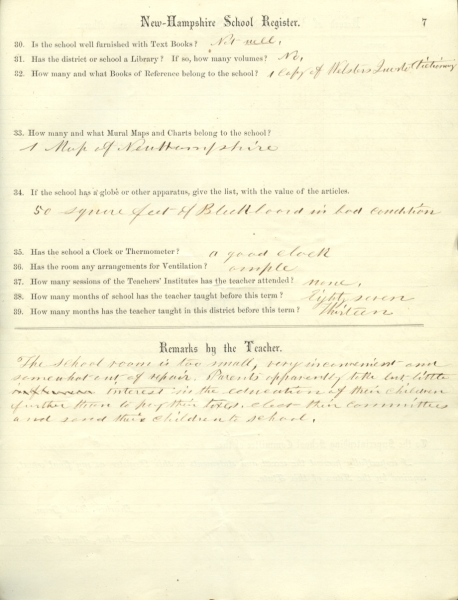 New-Hampshire School Register. 7
30. Is the school well furnished with Text Books? Not well.
31. Has the district or school a Library? If so, how many volumes? No,
32. How many and what Books of Reference belong to the school? 1 Copy of Websters Dictionary
33. How many and what Mural Maps and Charts belong to the school?
1 Map of New Hampshire
34. If the school has a globe or other apparatus, give the list, with the value of the articles.
50 squre feet of Blackboard in bad condition
35. Has the school a Clock or Thermometer? a good clock
36. Has the room any arrangements for Ventilation? ample
37. How many sessions of the Teachers' Institutes has the teacher attended? none,
38. How many months of school has the teacher taught before this term? Eighty seven
39. How many months has the teacher taught in this district before this term? Thirteen
Remarks by the Teacher.
The school room is too small, very inconvenient and
somewhat out of repair. Parents apparently take but little
interest in the education of their children
further than to pay their taxes, elect their committee
and send their children to school.